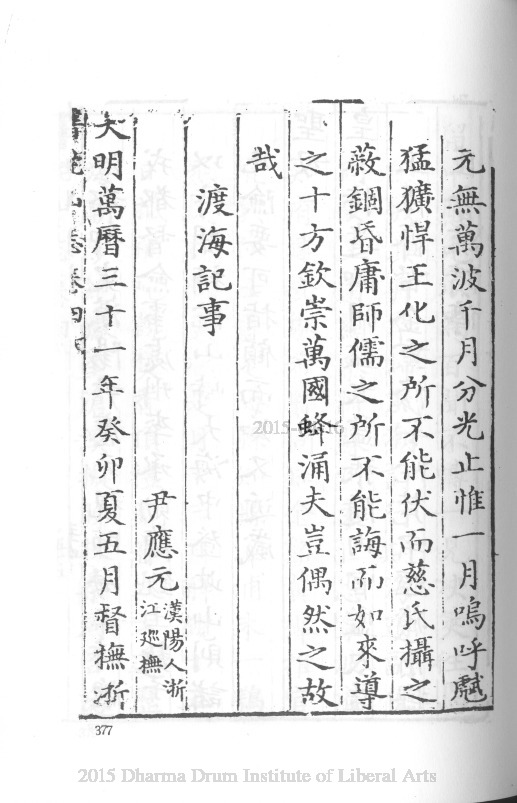 元無萬波千月分光止惟一月嗚呼麤
猛獷悍王化之所不能伏而慈氏攝之
蔽錮昏庸師儒之所不能誨而如來導
之十方欽崇萬國蜂涌夫豈偶然之故
哉
渡海記事
尹應元漢陽人浙
江廵撫
大明萬曆三十一年癸卯夏五月督撫浙
志卷四
377
2015 Dharma Drum Institute of Liberal Arts